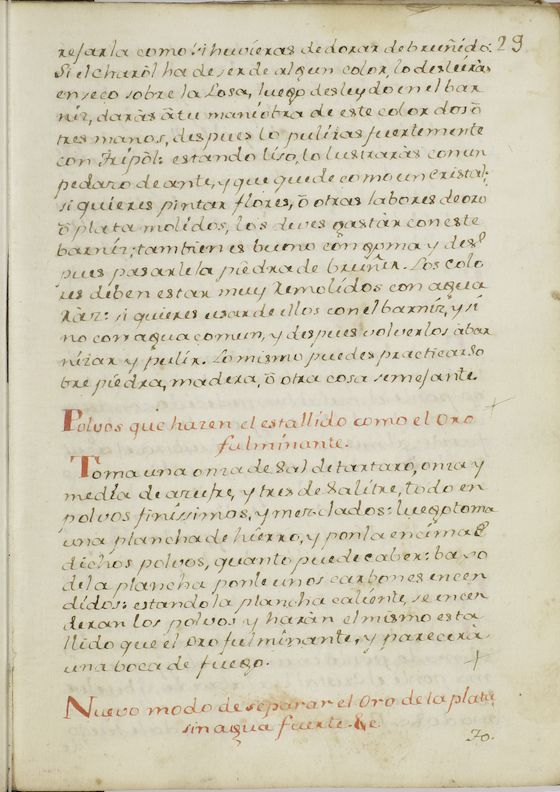 29
resarla como si huvieras de dorar de bruñido.
Si el charòl ha de ser de algun color, lo desleiràs
en seco sobre la Losa, luego desleydo en el bar
nìz, daràs à tu maniobra de este color dos ò
tres manos, despues lo puliras fuertemente
con Tripòl: estando liso, lo lustraràs con un
pedazo de ante, y que quede como un cristal;
si quieres pintar flores, ò otras labores de oro
ò plata molidos, los deves gastàr con este
barnìz; tambien es bueno còn goma y des
pues pasarle la piedra de bruñir. Los colo
res deben estar muy remolidos con agua
ràz: si quieres usar de ellos con el barnìz, y si
no con agua comun, y despues volverlos à bar
nizar y pulir. Lo mismo puedes practicar so
bre piedra, madera, ò otra cosa semejante.
Polvos que hazen el estallido como el Oro
fulminante.
Toma una onza de Sal de tartaro, onza y
media de azufre, y tres de Salitre, todo en
polvos finissimos, y mezclados: luego toma
una plancha de hierro, y ponla encima
dichos polvos, quanto puede caber: baxo
de la plancha ponle unos carbones encen
didos: estando la plancha caliente, se encen
deran los polvos y haràn el mismo esta
llido que el Oro fulminante, y parecerà
una boca de fuego.
Nuevo modo de separar el Oro de la plata,
sin agua fuerte &c.
To.